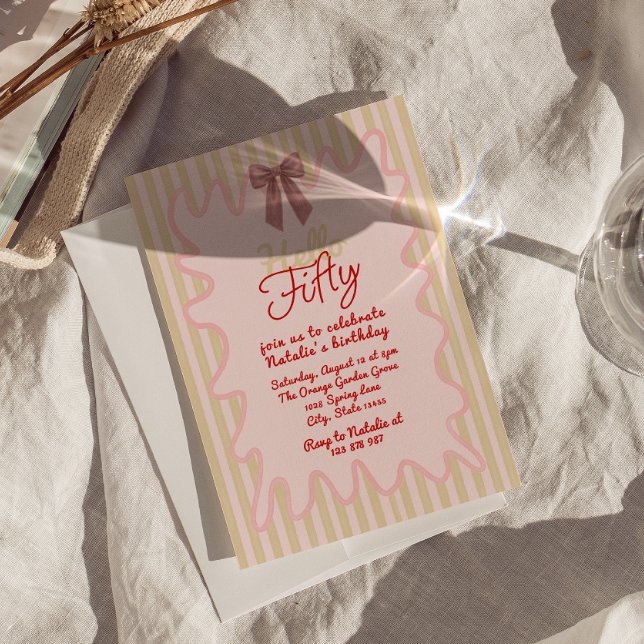 Hello
Fifty
join us to celebrate
Natalie's birthday
Saturday, August 12 at 8pm
The Orange Garden Grove
1028 Spring Lane
City, State 13455
Rsvp to Natalie at
123 878 987